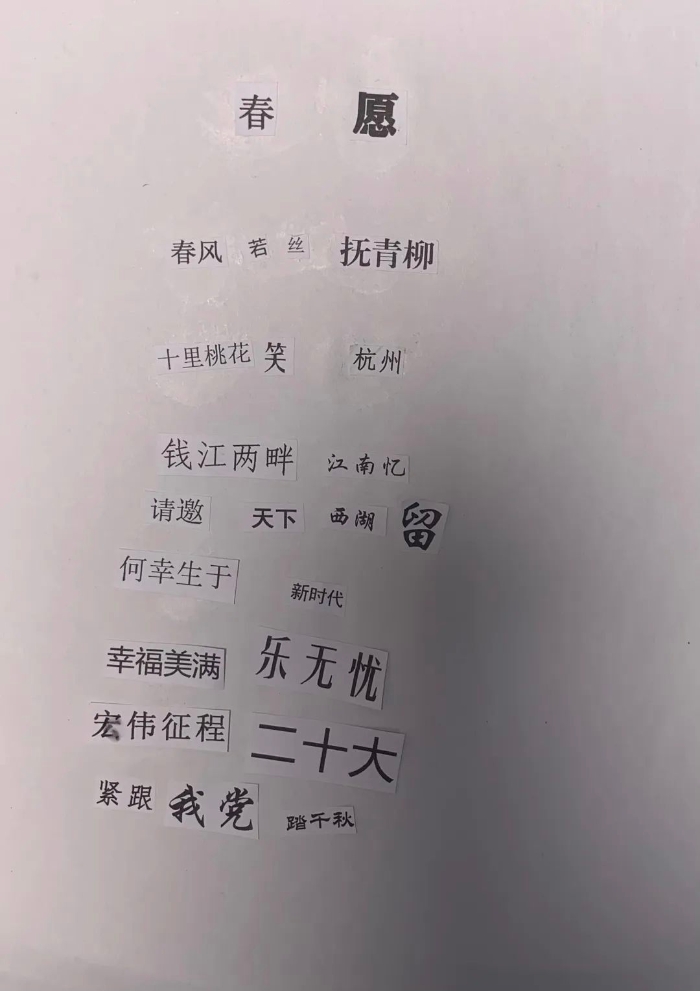 春 愿
春风 若 丝 抚青柳
十里桃花 笑 杭州
钱江两畔 江南忆
请邀 天下 西湖 留
何幸生于 新时代
幸福美满 乐无忧
宏伟征程 二十大
紧跟 我党 踏千秋